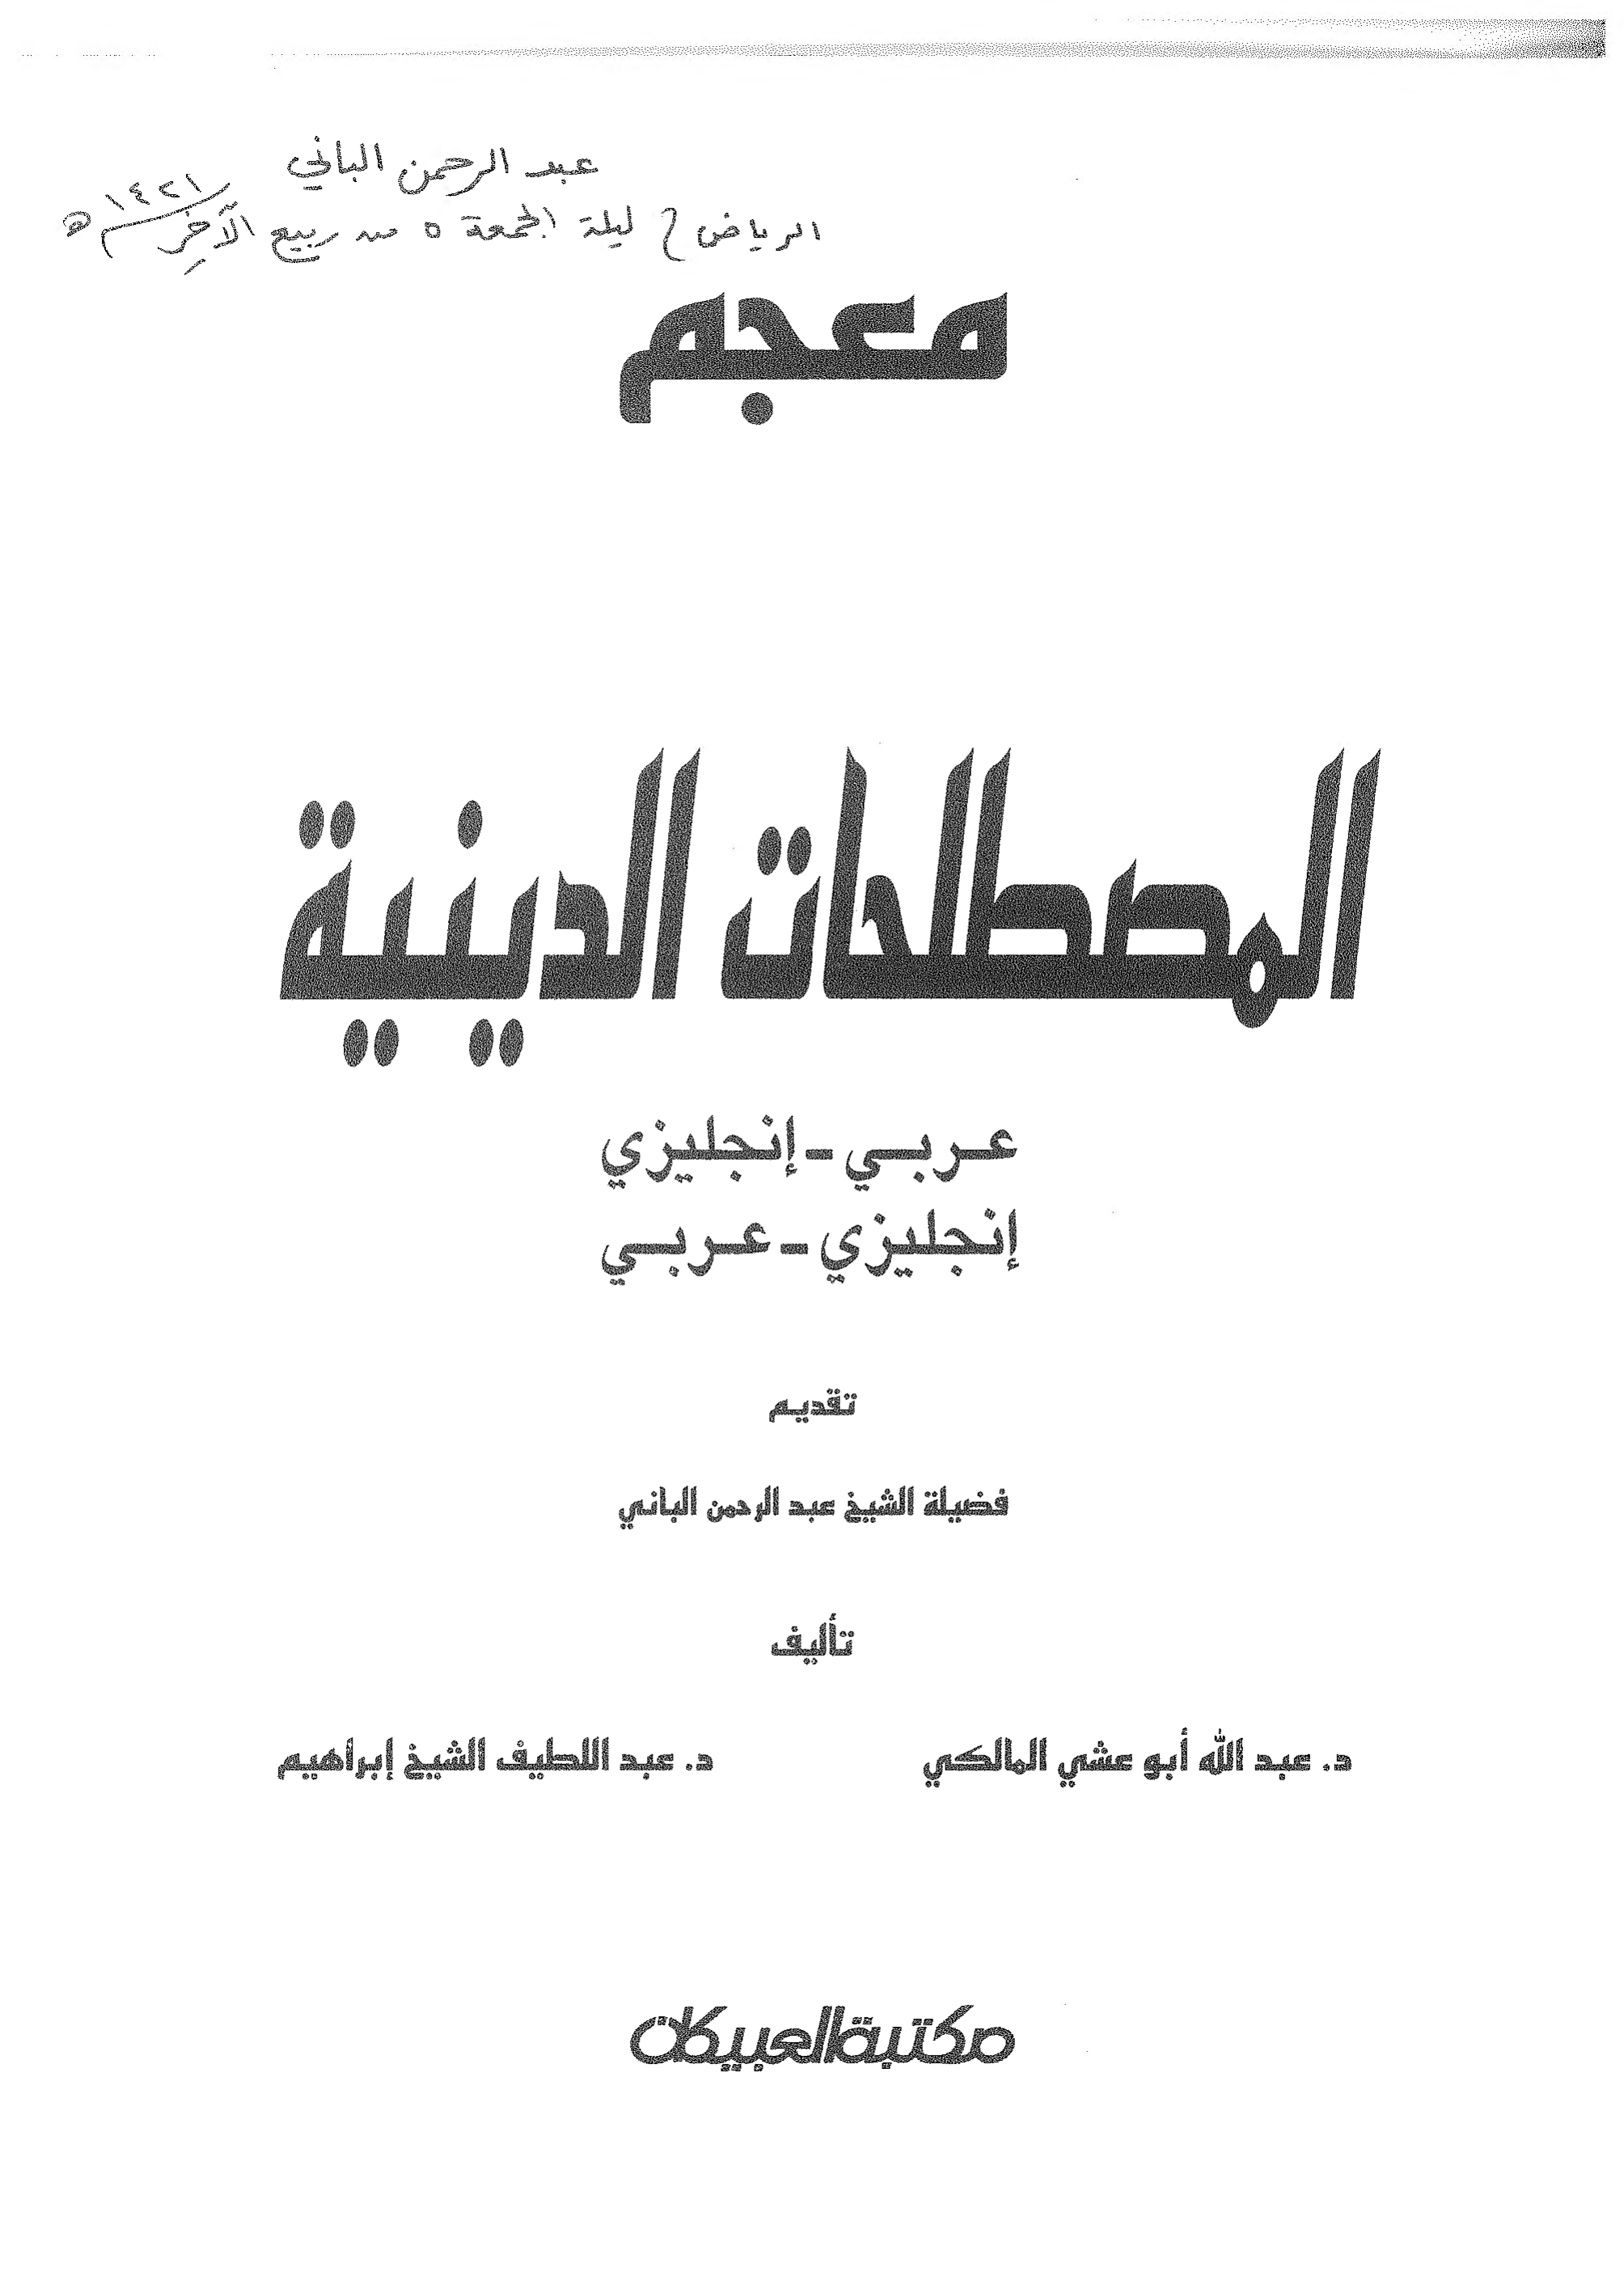 عبد الرحمن الباني
الرياض ليلة الجمعة ٥ من ربيع الآخِر ١٤٢١ هـ
معجم
المصطلحات الدينية
عربي - إنجليزي
إنجليزي - عربي
تقديم
فضيلة الشيخ عبد الرحمن الباني
تأليف
د. عبد الله أبو عشي المالكي
د. عبد اللطيف الشيخ إبراهيم
مكتبة العبيكان